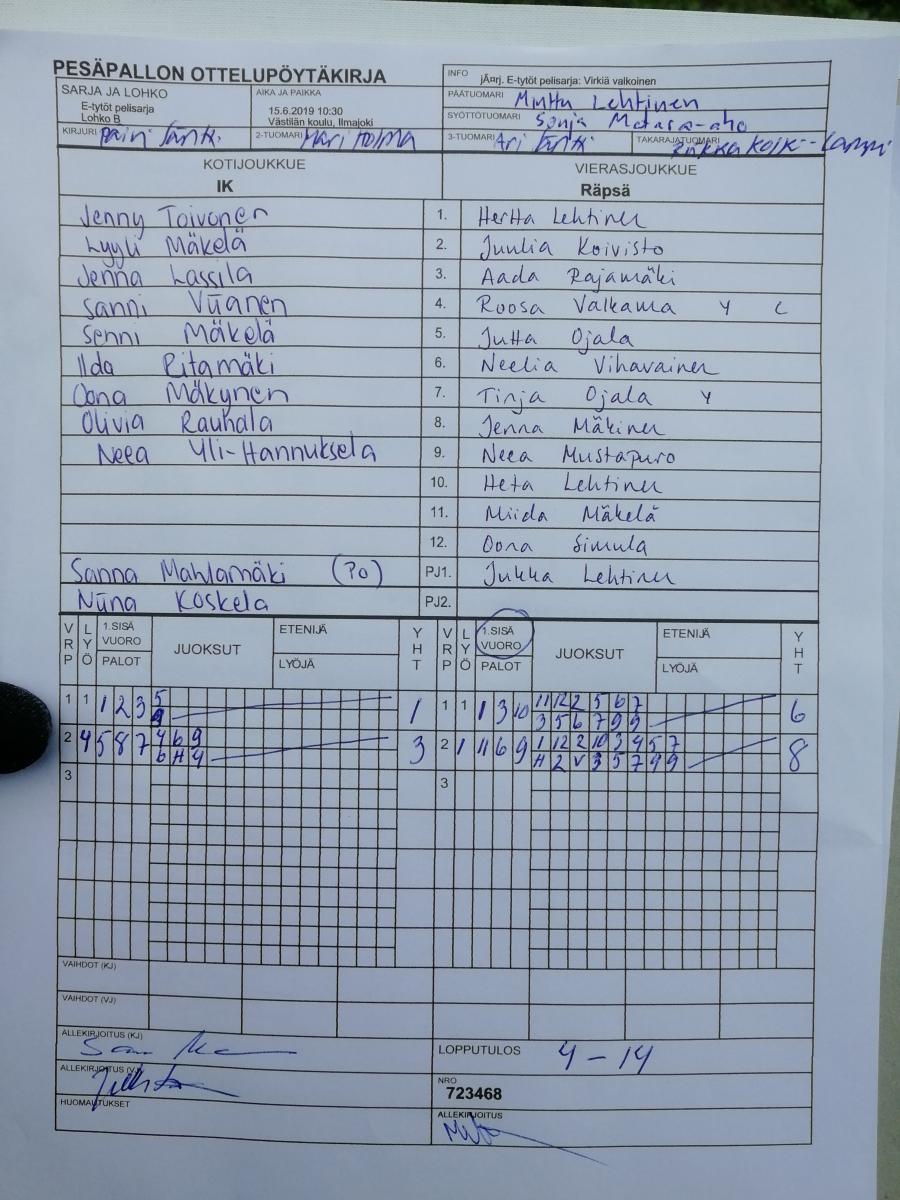 PESÄPALLON OTTELUPÖYTÄKIRJA
INFO jÃ¤rj. E-tytöt pelisarja: Virkiä valkoinen
SARJA JA LOHKO
E-tytöt pelisarja
Lohko B
AIKA JA PAIKKA
15.6.2019 10:30
Västilän koulu, Ilmajoki
PÄÄTUOMARI Minttu Lehtinen
SYÖTTÖTUOMARI Sonja
KIRJURI
2-TUOMARI Mari Holma
3-TUOMARI Ari
TAKARAJATUOMARI
KOTIJOUKKUE
IK
VIERASJOUKKUE
Räpsä
Jenny Toivonen 1. Hertta Lehtinen
Lyyli Mäkelä 2. Juulia Koivisto
Jenna Lassila 3. Aada Rajamäki
Sanni Viianen 4. Roosa Valkama Y C
Senni Mäkelä 5. Jutta Ojala
Ilda Ritamäki 6. Neelia Vihavainen
Oona Mäkynen 7. Tinja Ojala Y
Olivia Rauhala 8. Jenna Mäkinen
Neea Yli-Hannuksela 9. Neea Mustapuro
10. Heta Lehtinen
11. Miida Mäkelä
12. Oona Simula
Sanna Mahlamäki (PO) PJ1. Jukka Lehtinen
Niina Koskela PJ2.
VRP LYÖ 1.SISÄ VUORO PALOT JUOKSUT ETENIJÄ LYÖJÄ YHT VRP LYÖ 1.SISÄ VUORO PALOT JUOKSUT ETENIJÄ LYÖJÄ YHT
1 1 1 2 3 5 1 1 1 1 3 10 11 12 2 5 6 7 6
3 5 6 7 9 9
2 4 5 8 7 4 6 9 3 2 1 4 6 9 1 12 2 10 3 4 5 7 8
6 H 4 H 2 V 3 5 7 9 9
3 3
VAIHDOT (KJ)
VAIHDOT (VJ)
ALLEKIRJOITUS (KJ)
LOPPUTULOS 4 - 14
ALLEKIRJOITUS (VJ)
NRO
723468
HUOMAUTUKSET
ALLEKIRJOITUS